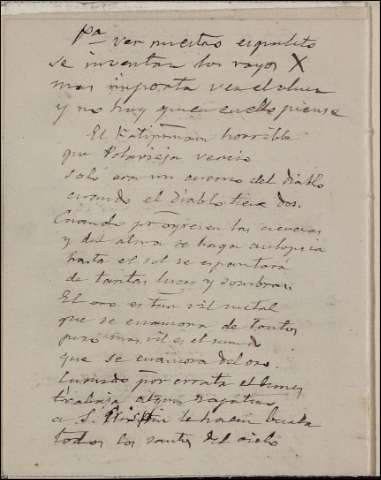 Pa ver nuestro esqueleto
se inventan los rayos X
mas importa ver el alma
y no hay quien en ello piense
El Katipunan horrible
que Polavieja venció
solo era un cuerno del diablo
cuando el Diablo tiene dos.
Cuando progresen las ciencias
y del alma se haga autopsia
hasta el sol se espantará
de tantas luces y sombras
El oro es tan vil metal
que se enamora de tontos
pero mas vil es el mundo
que se enamora del oro.
Cuando por errata el lunes
trabaja algun zapatero
a S. Crispin le hacen burla
todos los santos del cielo